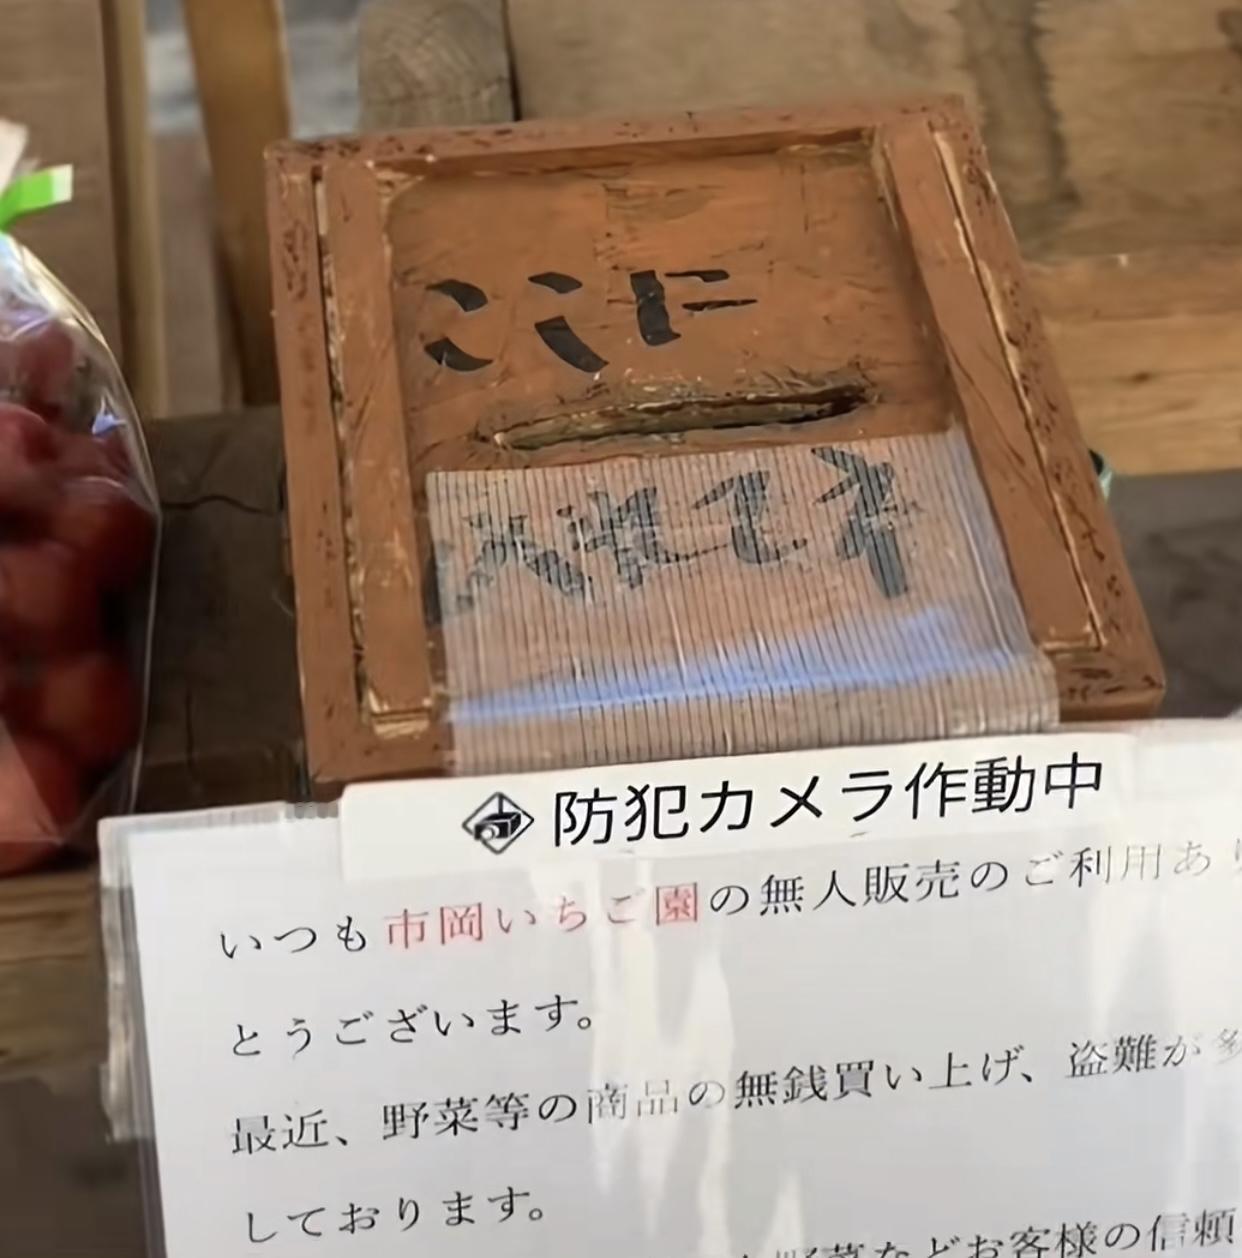 ここに
入れて
防犯カメラ作動中
いつも市岡いちご園の無人販売のご利用あ
とうございます。
最近、野菜等の商品の無銭買い上げ、盗難が多
しております。
野菜などお客様の信頼